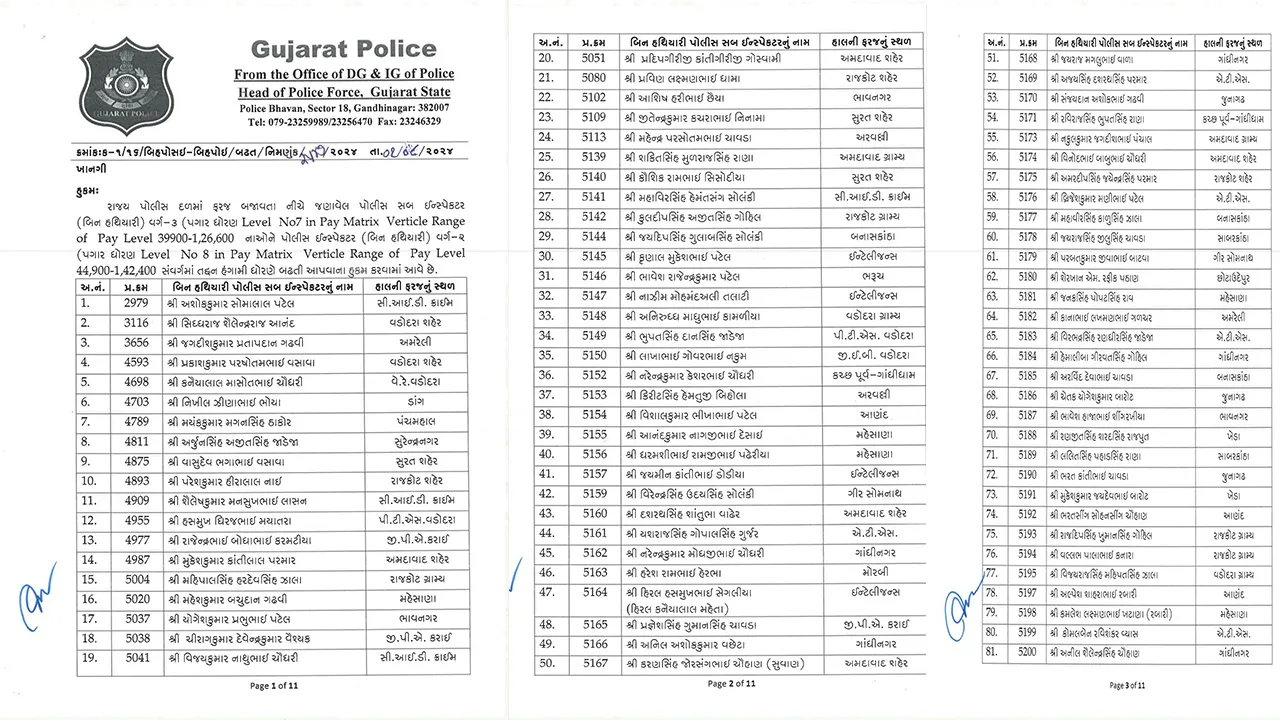 Gujarat Police
From the Office of DG & IG of Police
Head of Police Force, Gujarat State
Police Bhavan, Sector 18, Gandhinagar: 382007
Tel: 079-23259989/23256470 Fax: 23246329
GUJARAT POLICE
ક્રમાંકઃક-૧/૧૬/બિહપોસઈ-બિહપોઈ/બઢત/નિમણુંક/ /૨૦૨૪ તા.૦૨/૦૮/૨૦૨૪
ખાનગી
હુકમઃ
રાજ્ય પોલીસ દળમાં ફરજ બજાવતા નીચે જણાવેલ પોલીસ સબ ઈન્સ્પેકટર
(બિન હથિયારી) વર્ગ-૩ (પગાર ધોરણ Level No7 in Pay Matrix Verticle Range
of Pay Level 39900-1,26,600 નાઓને પોલીસ ઈન્સ્પેકટર (બિન હથિયારી) વર્ગ-૨
(પગાર ધોરણ Level No 8 in Pay Matrix Verticle Range of Pay Level
44,900-1,42,400 સંવર્ગમાં તદ્દન હંગામી ધોરણે બઢતી આપવાના હુકમ કરવામાં આવે છે.
અ.નં. પ્ર.ક્રમ બિન હથિયારી પોલીસ સબ ઈન્સ્પેકટરનું નામ હાલની ફરજનું સ્થળ
1. 2979 શ્રી અશોકકુમાર સોમાલાલ પટેલ સી.આઈ.ડી. ક્રાઈમ
2. 3116 શ્રી સિધ્ધરાજ શૈલેન્દ્રરાજ આનંદ વડોદરા શહેર
3. 3656 શ્રી જગદીશકુમાર પ્રતાપદાન ગઢવી અમરેલી
4. 4593 શ્રી પ્રકાશકુમાર પરષોતમભાઈ વસાવા વડોદરા શહેર
5. 4698 શ્રી કનૈયાલાલ માસોતભાઈ ચૌધરી વે.રે.વડોદરા
6. 4703 શ્રી નિખીલ ઝીણાભાઈ ભોયા ડાંગ
7. 4789 શ્રી મયંકકુમાર મગનસિંહ ઠાકોર પંચમહાલ
8. 4811 શ્રી અર્જુનસિંહ અજીતસિંહ જાડેજા સુરેન્દ્રનગર
9. 4875 શ્રી વાસુદેવ ભગાભાઈ વસાવા સુરત શહેર
10. 4893 શ્રી પરેશકુમાર હીરાલાલ નાઈ રાજકોટ શહેર
11. 4909 શ્રી શૈલેષકુમાર મનસુખભાઈ લાસન સી.આઈ.ડી. ક્રાઈમ
12. 4955 શ્રી હસમુખ ધિરજભાઈ મયાતરા પી.ટી.એસ.વડોદરા
13. 4977 શ્રી રાજેન્દ્રભાઈ બોધાભાઈ કરમટીયા જી.પી.એ.કરાઈ
14. 4987 શ્રી મુકેશકુમાર કાંતીલાલ પરમાર અમદાવાદ શહેર
15. 5004 શ્રી મહિપાલસિંહ હરદેવસિંહ ઝાલા રાજકોટ ગ્રામ્ય
16. 5020 શ્રી મહેશકુમાર બચુદાન ગઢવી મહેસાણા
17. 5037 શ્રી યોગેશકુમાર પ્રભુભાઈ પટેલ ભાવનગર
18. 5038 શ્રી ચીરાગકુમાર દેવેન્દ્રકુમાર વૈશ્યક જી.પી.એ. કરાઈ
19. 5041 શ્રી વિજયકુમાર નાથુભાઈ ચૌધરી સી.આઈ.ડી. ક્રાઈમ
Page 1 of 11
અ.નં. પ્ર.ક્રમ બિન હથિયારી પોલીસ સબ ઈન્સ્પેકટરનું નામ હાલની ફરજનું સ્થળ
20. 5051 શ્રી પ્રદિપગીરીજી કાંતીગીરીજી ગોસ્વામી અમદાવાદ શહેર
21. 5080 શ્રી પ્રવિણ લક્ષ્મણભાઈ ધામા રાજકોટ શહેર
22. 5102 શ્રી આશિષ હરીભાઈ છૈયા ભાવનગર
23. 5109 શ્રી જીતેન્દ્રકુમાર કચરાભાઈ નિનામા સુરત શહેર
24. 5113 શ્રી મહેન્દ્ર પરસોતમભાઈ ચાવડા અરવલ્લી
25. 5139 શ્રી શકિતસિંહ મુળરાજસિંહ રાણા અમદાવાદ ગ્રામ્ય
26. 5140 શ્રી કૌશિક રામભાઈ સિસોદીયા સુરત શહેર
27. 5141 શ્રી મહાવિરસિંહ હેમંતસંગ સોલંકી સી.આઈ.ડી. ક્રાઈમ
28. 5142 શ્રી કુલદીપસિંહ અજીતસિંહ ગોહિલ રાજકોટ ગ્રામ્ય
29. 5144 શ્રી જયદિપસિંહ ગુલાબસિંહ સોલંકી બનાસકાંઠા
30. 5145 શ્રી કૃણાલ મુકેશભાઈ પટેલ ઈન્ટેલીજન્સ
31. 5146 શ્રી ભાવેશ રાજેન્દ્રકુમાર પટેલ ભરૂચ
32. 5147 શ્રી નાઝીમ મોહમંદઅલી તલાટી ઈન્ટેલીજન્સ
33. 5148 શ્રી અનિરુધ્ધ માધુભાઈ કામળીયા વડોદરા ગ્રામ્ય
34. 5149 શ્રી ભુપતસિંહ દાનસિંહ જાડેજા પી.ટી.એસ. વડોદરા
35. 5150 શ્રી લાખાભાઈ ગોવરભાઈ નકુમ જી.ઈ.બી. વડોદરા
36. 5152 શ્રી નરેન્દ્રકુમાર કેશરભાઈ ચૌધરી કચ્છ પૂર્વ-ગાંધીધામ
37. 5153 શ્રી કિરીટસિંહ હેમતુજી બિહોલા અરવલ્લી
38. 5154 શ્રી વિશાલકુમાર ભીખાભાઈ પટેલ આણંદ
39. 5155 શ્રી આનંદકુમાર નાગજીભાઈ દેસાઈ મહેસાણા
40. 5156 શ્રી ધરમશીભાઈ રામજીભાઈ પઢેરીયા મહેસાણા
41. 5157 શ્રી જયમીન કાંતીભાઈ ડોડીયા ઈન્ટેલીજન્સ
42. 5159 શ્રી વિરેન્દ્રસિંહ ઉદયસિંહ સોલંકી ગીર સોમનાથ
43. 5160 શ્રી દશરથસિંહ શાંતુભા વાઢેર અમદાવાદ શહેર
44. 5161 શ્રી યશરાજસિંહ ગોપાલસિંહ ગુર્જર એ.ટી.એસ.
45. 5162 શ્રી નરેન્દ્રકુમાર મોઘજીભાઈ ચૌધરી ગાંધીનગર
46. 5163 શ્રી હરેશ રામભાઈ હેરભા મોરબી
47. 5164 શ્રી હિરલ હસમુખભાઈ સેગલીયા ઈન્ટેલીજન્સ
(હિરલ કનૈયાલાલ મહેતા)
48. 5165 શ્રી પ્રજ્ઞેશસિંહ ગુમાનસિંહ ચાવડા જી.પી.એ. કરાઈ
49. 5166 શ્રી અનિલ અશોકકુમાર વછેટા ગાંધીનગર
50. 5167 શ્રી કરણસિંહ જોરસંગભાઈ ચૌહાણ (સુવાણ) અમદાવાદ શહેર
Page 2 of 11
અ.નં. પ્ર.ક્રમ બિન હથિયારી પોલીસ સબ ઈન્સ્પેકટરનું નામ હાલની ફરજનું સ્થળ
51. 5168 શ્રી જયરાજ મગલુભાઈ વાળા ગાંધીનગર
52. 5169 શ્રી અજયસિંહ દશરથસિંહ પરમાર એ.ટી.એસ.
53. 5170 શ્રી સંજયદાન અશોકભાઈ ગઢવી જુનાગઢ
54. 5171 શ્રી રવિરાજસિંહ ભુપતસિંહ રાણા કચ્છ પૂર્વ-ગાંધીધામ
55. 5173 શ્રી નકુલકુમાર જગદીશભાઈ પંચાલ અમદાવાદ ગ્રામ્ય
56. 5174 શ્રી વિનોદભાઈ બાબુભાઈ ચૌધરી અમદાવાદ શહેર
57. 5175 શ્રી અમરદીપસિંહ જયેન્દ્રસિંહ પરમાર રાજકોટ શહેર
58. 5176 શ્રી બ્રિજેશકુમાર મણીભાઈ પટેલ એ.ટી.એસ.
59. 5177 શ્રી મહાવીરસિંહ કાળુસિંહ ઝાલા બનાસકાંઠા
60. 5178 શ્રી જયરાજસિંહ જીલુસિંહ ચાવડા સાબરકાંઠા
61. 5179 શ્રી પરબતકુમાર જીવાભાઈ બાટવા ગીર સોમનાથ
62. 5180 શ્રી શેરખાન એમ. રફીક પઠાણ છોટાઉદેપુર
63. 5181 શ્રી જનકસિંહ પોપટસિંહ રાવ મહેસાણા
64. 5182 શ્રી કાનાભાઈ લખમણભાઈ ગળચર અમરેલી
65. 5183 શ્રી વિરભદ્રસિંહ રણધીરસિંહ જાડેજા એ.ટી.એસ.
66. 5184 શ્રી હેમાલીબા ગીરવતસિંહ ગોહિલ ગાંધીનગર
67. 5185 શ્રી અરવિંદ દેવાભાઈ ચાવડા બનાસકાંઠા
68. 5186 શ્રી ચેતક યોગેશકુમાર બારોટ જુનાગઢ
69. 5187 શ્રી ભાવેશ હાજાભાઈ શીંગરખીયા ભાવનગર
70. 5188 શ્રી રણજીતસિંહ શરદસિંહ રાજપુત ખેડા
71. 5189 શ્રી લલિતસિંહ પહાડસિંહ રાણા સાબરકાંઠા
72. 5190 શ્રી ભરત કાંતિભાઈ ચાવડા જુનાગઢ
73. 5191 શ્રી મુકેશકુમાર જયદેવભાઈ બારોટ ખેડા
74. 5192 શ્રી ભરતસીંગ સોહનસીંગ ચૌહાણ આણંદ
75. 5193 શ્રી રાજદિપસિંહ ખુમાનસિંહ ગોહિલ રાજકોટ ગ્રામ્ય
76. 5194 શ્રી વલ્લભ પાલાભાઈ કનારા રાજકોટ ગ્રામ્ય
77. 5195 શ્રી વિજયરાજસિંહ મહિપતસિંહ ઝાલા વડોદરા ગ્રામ્ય
78. 5197 શ્રી અલ્પેશ શાહરાભાઈ રબારી આણંદ
79. 5198 શ્રી કમલેશ લક્ષ્મણભાઈ ખટાણા (રબારી) મહેસાણા
80. 5199 શ્રી કોમલબેન રવિશંકર વ્યાસ એ.ટી.એસ.
81. 5200 શ્રી અનીલ શૈલેન્દ્રસિંહ ચૌહાણ ગાંધીનગર
Page 3 of 11